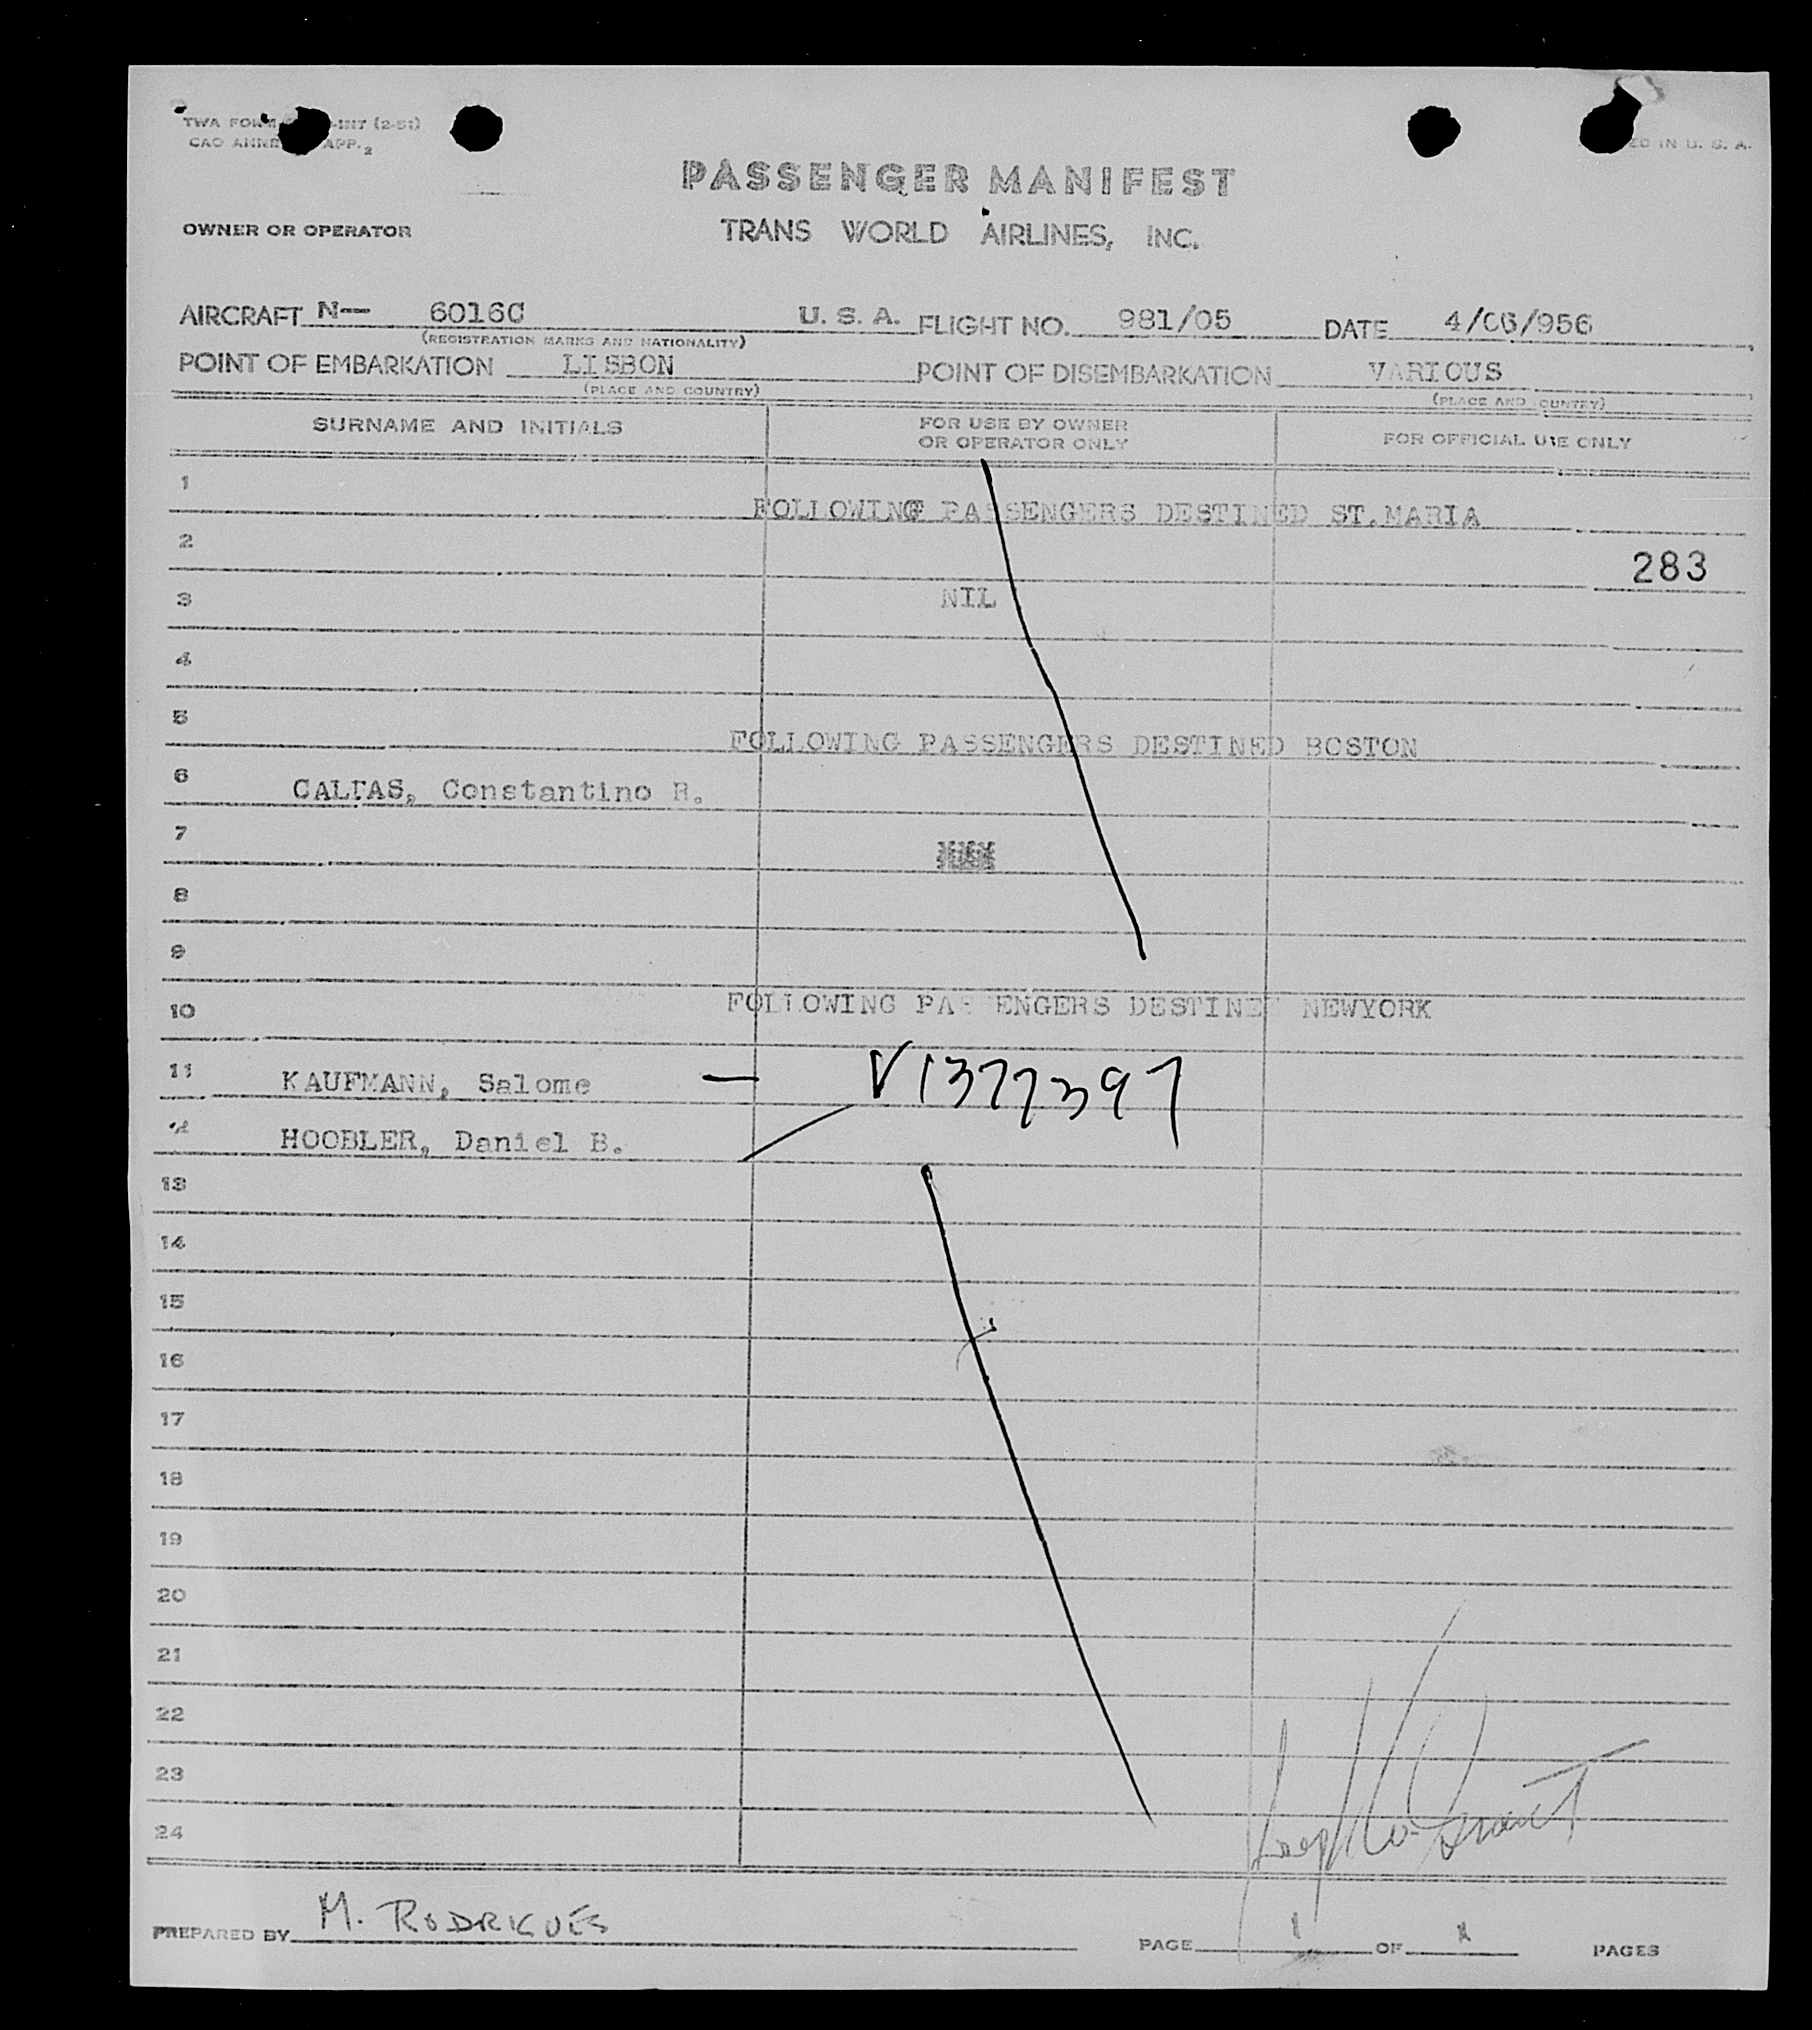 TWA FORM -INT (2-51)
CAO ANNE APP. 2
ED IN U. S. A.
PASSENGER MANIFEST
OWNER OR OPERATOR
TRANS WORLD AIRLINES, INC.
AIRCRAFT N-- 6016C U. S. A. FLIGHT NO. 981/05 DATE 4/06/956
(REGISTRATION MARKS AND NATIONALITY)
POINT OF EMBARKATION LISBON POINT OF DISEMBARKATION VARIOUS
(PLACE AND COUNTRY) (PLACE AND COUNTRY)
SURNAME AND INITIALS
FOR USE BY OWNER
OR OPERATOR ONLY
FOR OFFICIAL USE ONLY
1
FOLLOWING PASSENGERS DESTINED ST.MARIA
2
283
3 NIL
4
5
FOLLOWING PASSENGERS DESTINED BOSTON
6 CALDAS, Constantino R.
7
8
9
FOLLOWING PASSENGERS DESTINED NEWYORK
10
11 KAUFMANN, Salome — V1377397
12 HOOBLER, Daniel B.
13
14
15
16
17
18
19
20
21
22
23
24
PREPARED BY M. RODRIGUES PAGE 1 OF 1 PAGES